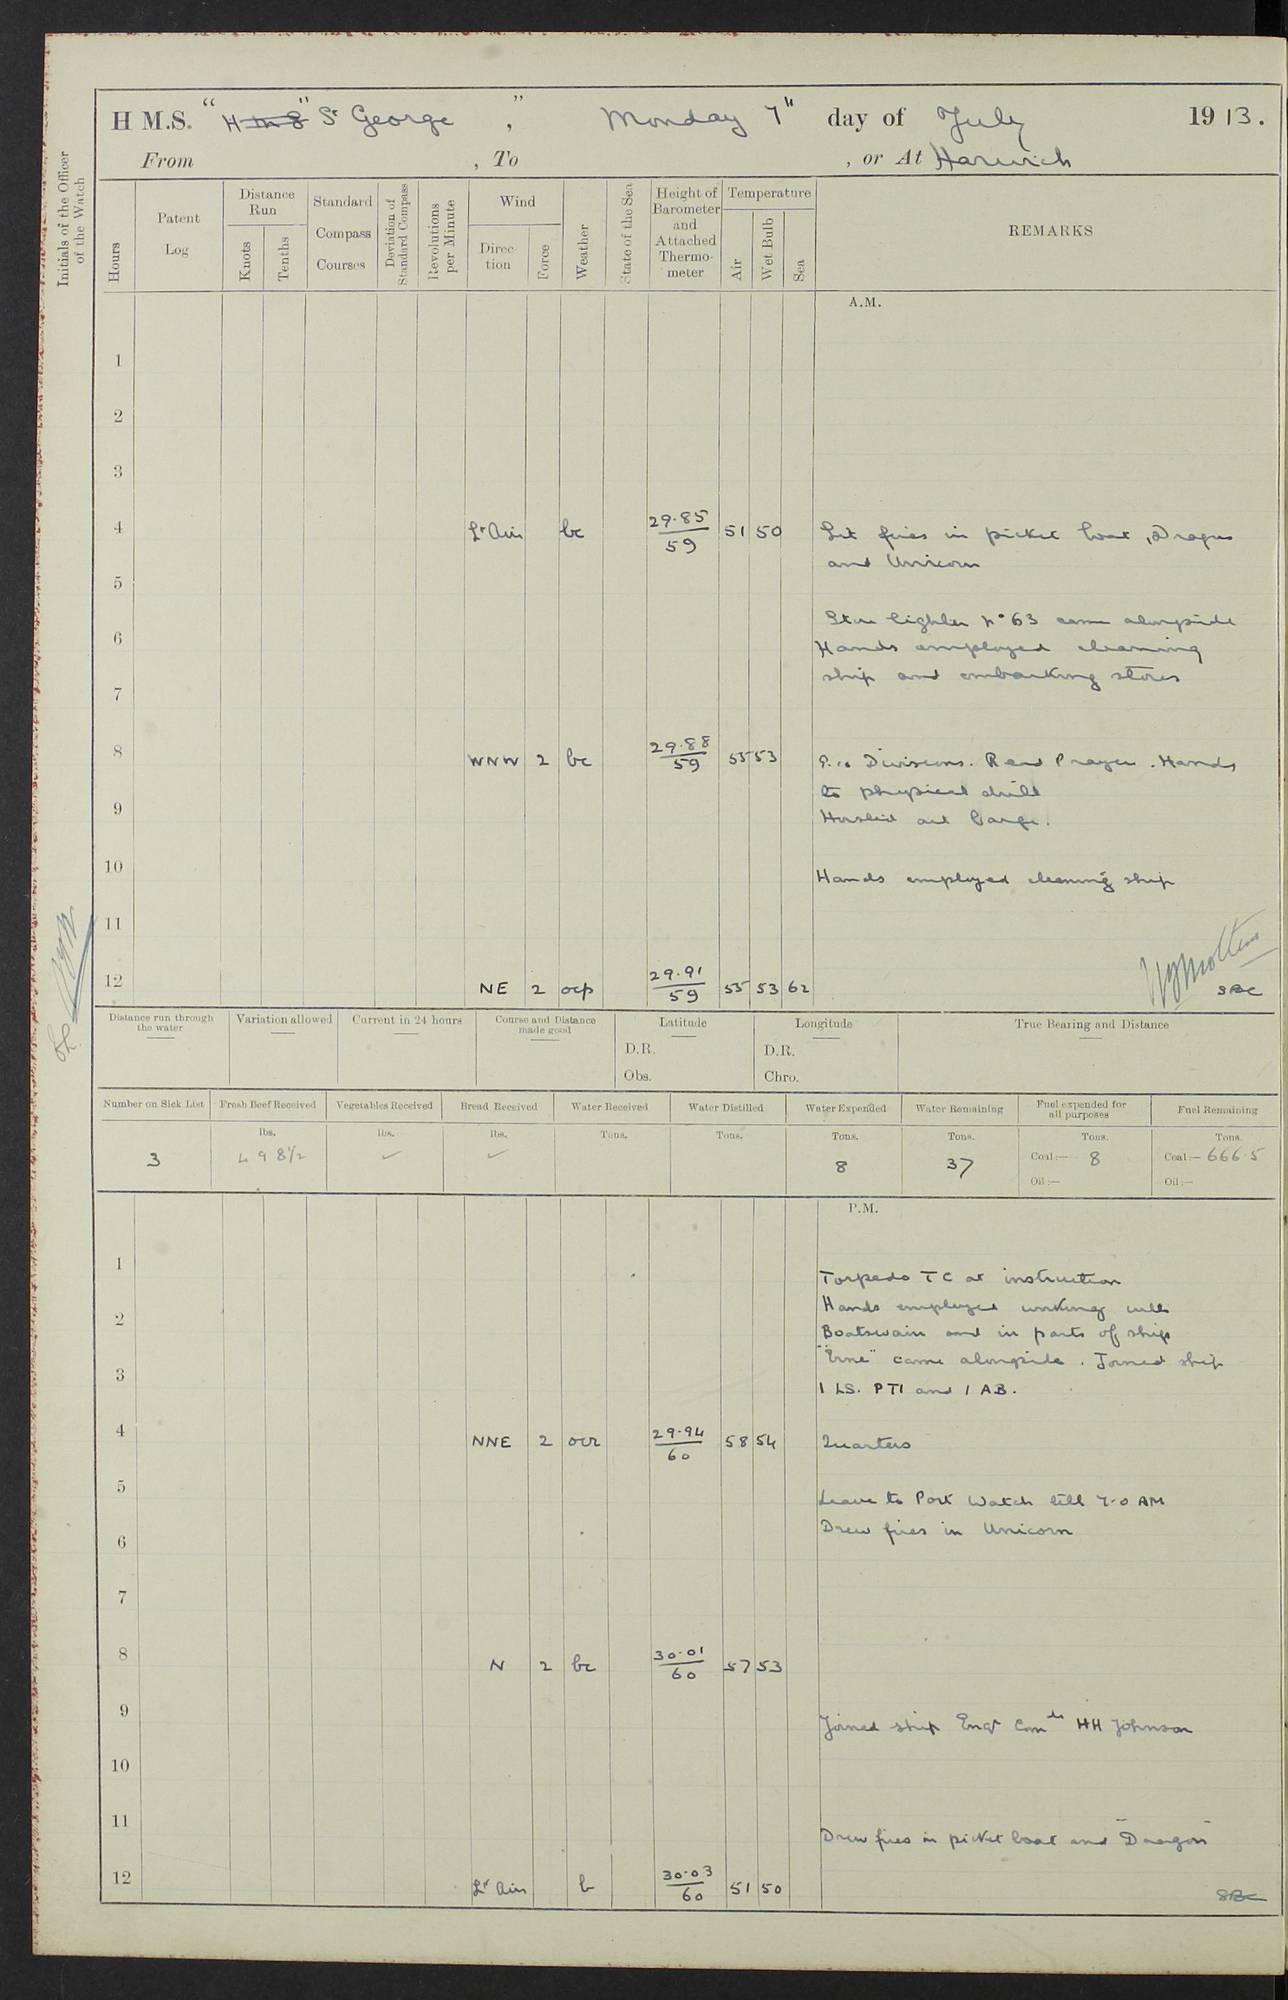 H M.S. "H M S" St George , " Monday 7th day of July 1913.
From , To , or At Harwich
Initials of the Officer of the Watch
Hours
Patent Log
Distance Run
Knots
Tenths
Standard Compass Courses
Deviation of Standard Compass
Revolutions per Minute
Wind
Direc-tion
Force
Weather
State of the Sea
Height of Barometer and Attached Thermo-meter
Temperature
Air
Wet Bulb
Sea
REMARKS
A.M.
1
2
3
4 Lt Airs bc 29.85/59 51 50 Lit fires in picket boat, Dragon
and Unicorn
5
Store lighter No 63 came alongside
6 Hands employed cleaning
ship and embarking stores
7
8 WNW 2 bc 29.88/59 55 53 9.10 Divisions. Read Prayers. Hands
to physical drill
9 Hoisted out barge.
10 Hands employed cleaning ship
11
12 NE 2 ocp 29.91/59 55 53 62 SBC
Distance run through the water
Variation allowed
Current in 24 hours
Course and Distance made good
Latitude
D.R.
Obs.
Longitude
D.R.
Chro.
True Bearing and Distance
Number on Sick List
Fresh Beef Received
Vegetables Received
Bread Received
Water Received
Water Distilled
Water Expended
Water Remaining
Fuel expended for all purposes
Fuel Remaining
lbs. lbs. lbs. Tons. Tons. Tons. Tons. Tons. Tons.
3 498½ ✓ ✓ 8 37 Coal:— 8 Coal:— 666.5
Oil:— Oil:—
P.M.
1 Torpedo TC at instruction
2 Hands employed working with
Boatswain and in parts of ship
3 "Erne" came alongside. Joined ship
1 LS. PTI and 1 AB.
4 NNE 2 ocr 29.94/60 58 54 Quarters
5 Leave to Port Watch till 7.0 AM
6 Drew fires in Unicorn
7
8 N 2 bc 30.01/60 57 53
9 Joined ship Engr Comdr HH Johnson
10
11 Drew fires in picket boat and "Dragon"
12 Lt Airs b 30.03/60 51 50 SBC